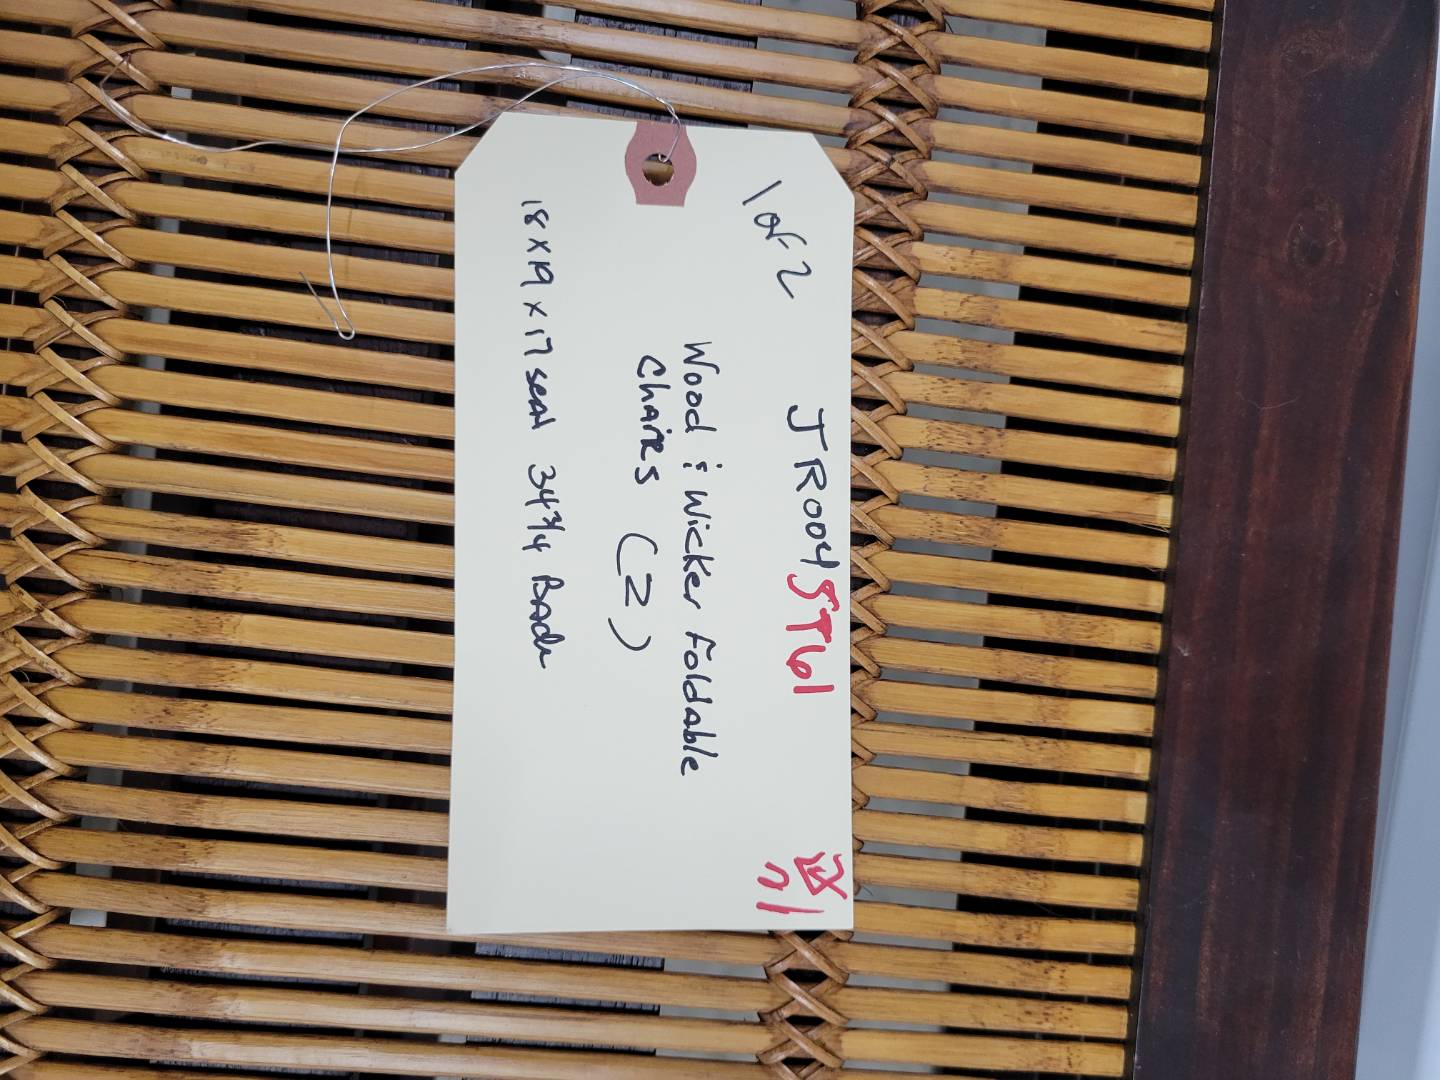 1 of 2
JR0045T61
Wood & Wicker Foldable
Chairs (2)
18 x 19 x 17 seat 34 3/4 Back